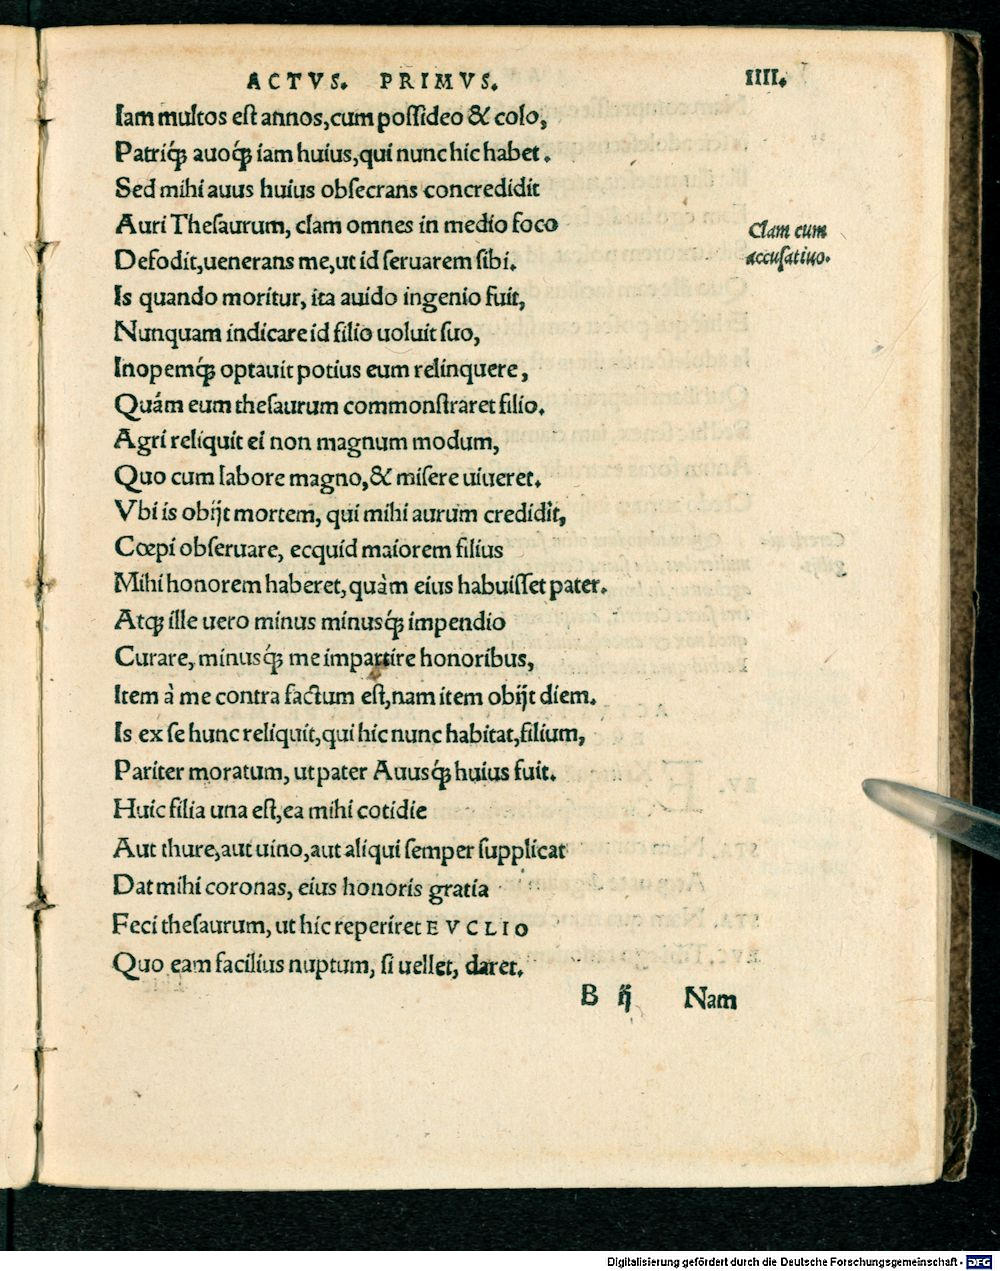 ACTVS. PRIMVS. IIII.
Iam multos eſt annos, cum poſſideo & colo,
Patriq́ꝫ auoq́ꝫ iam huius, qui nunc hic habet.
Sed mihi auus huius obſecrans concredidit
Auri Theſaurum, clam omnes in medio foco
Clam cum
accuſatiuo.
Defodit, uenerans me, ut id ſeruarem ſibi.
Is quando moritur, ita auido ingenio fuit,
Nunquam indicare id filio uoluit ſuo,
Inopemq́ꝫ optauit potius eum relinquere,
Quám eum theſaurum commonſtraret filio.
Agri reliquit ei non magnum modum,
Quo cum labore magno, & miſere uiueret.
Vbi is obijt mortem, qui mihi aurum credidit,
Cœpi obſeruare, ecquid maiorem filius
Mihi honorem haberet, quàm eius habuiſſet pater.
Atqꝫ ille uero minus minusq́ꝫ impendio
Curare, minusq́ꝫ me impartire honoribus,
Item à me contra factum eſt, nam item obijt diem.
Is ex ſe hunc reliquit, qui hic nunc habitat, filium,
Pariter moratum, ut pater Auusq́ꝫ huius fuit.
Huic filia una eſt, ea mihi cotidie
Aut thure, aut uino, aut aliqui ſemper ſupplicat
Dat mihi coronas, eius honoris gratia
Feci theſaurum, ut hic reperiret EVCLIO
Quo eam facilius nuptum, ſi uellet, daret.
B ij Nam
Digitalisierung gefördert durch die Deutsche Forschungsgemeinschaft - DFG